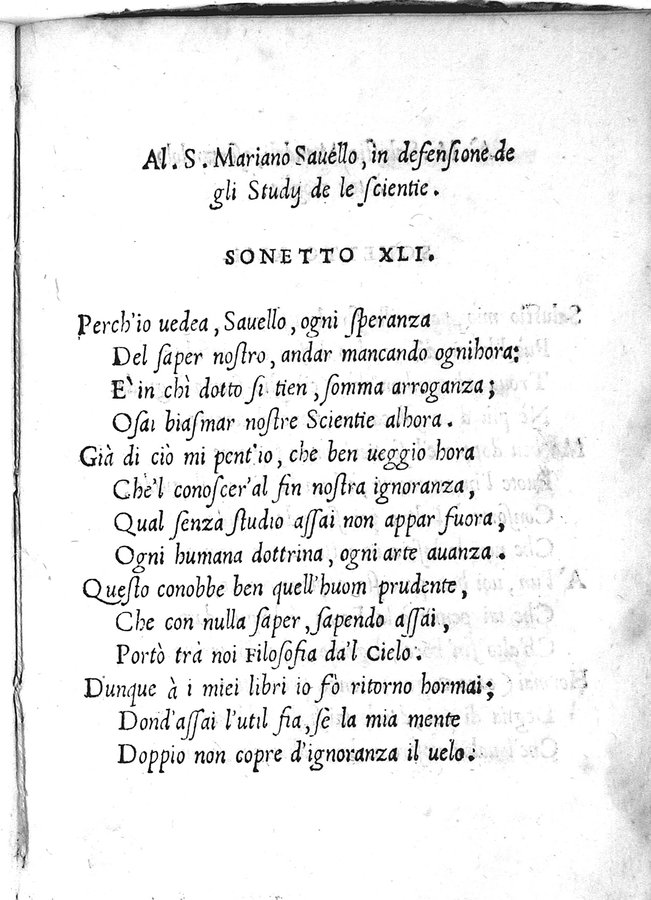 Al. S. Mariano Sauello, in defensione de
gli Study de le scientie.
SONETTO XLI.
Perch'io uedea, Sauello, ogni speranza
Del saper nostro, andar mancando ognihora:
E' in chì dotto si tien, somma arroganza;
Osai biasmar nostre Scientie alhora.
Già di ciò mi pent'io, che ben ueggio hora
Che'l conoscer'al fin nostra ignoranza,
Qual senza studio assai non appar fuora,
Ogni humana dottrina, ogni arte auanza.
Questo conobbe ben quell'huom prudente,
Che con nulla saper, sapendo assai,
Portò trà noi Filosofia da'l Cielo.
Dunque à i miei libri io fò ritorno hormai;
Dond'assai l'util fia, se la mia mente
Doppio non copre d'ignoranza il uelo.